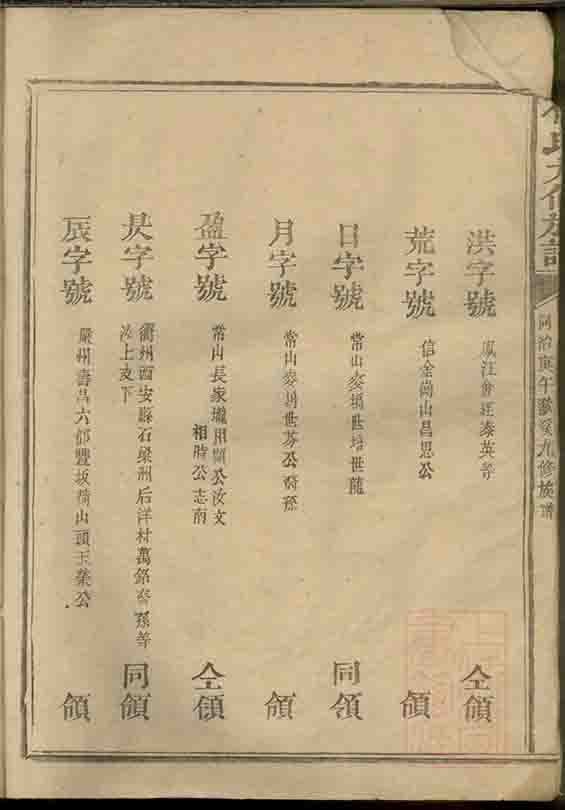 氏大修族譜
同治庚午九修族譜
洪字號 汪會廷泰英等 仝領
荒字號 信金尚山昌思公 領
日字號 常山麥塢世培世龍 同領
月字號 常山麥塢世芬公裔孫 領
盈字號 常山長家瓏用開公汝文
相時公志南 仝領
昃字號 衢州西安縣石梁洲后洋村萬銘孫等
上支下 同領
辰字號 嚴州壽昌六都豐坂山頭玉榮公 領